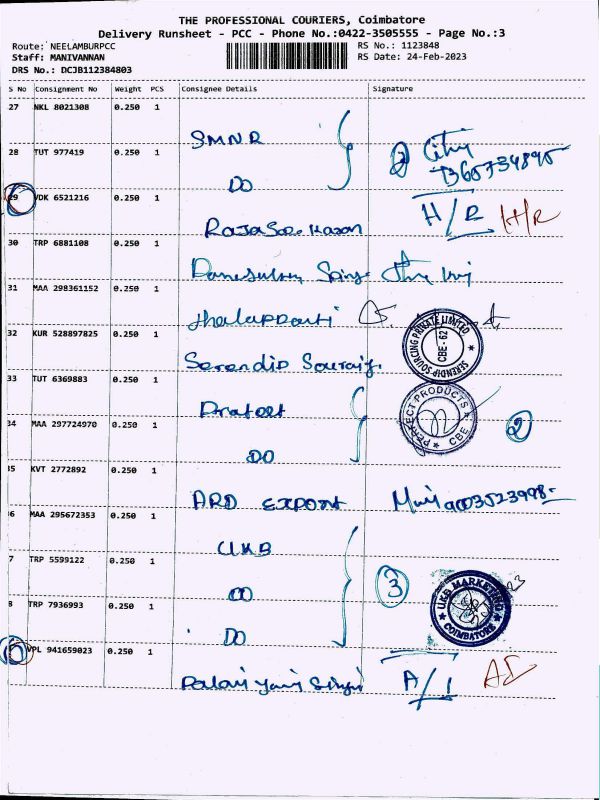 THE PROFESSIONAL COURIERS, Coimbatore
Delivery Runsheet - PCC - Phone No.:0422-3505555 - Page No.:3
Route: NEELAMBURPCC RS No.: 1123848
Staff: MANIVANNAN RS Date: 24-Feb-2023
DRS No.: DCJB112384803
S No Consignment No Weight PCS Consignee Details Signature
27 NKL 8021308 0.250 1
SMNR
28 TUT 977419 0.250 1
DO
29 VDK 6521216 0.250 1 H/R H/R
30 TRP 6881108 0.250 1
31 MAA 298361152 0.250 1
32 KUR 528897825 0.250 1 SERENDIP SOURCING PRIVATE LIMITED CBE - 62
Serendip
33 TUT 6369883 0.250 1 PERFECT PRODUCTS CBE
34 MAA 297724970 0.250 1 2
DO
35 KVT 2772892 0.250 1
ARD EXPORT
6 MAA 295672353 0.250 1
UKB
7 TRP 5599122 0.250 1 3 UKB MARKETING COIMBATORE
DO
8 TRP 7936993 0.250 1
DO
VPL 941659023 0.250 1
A/I